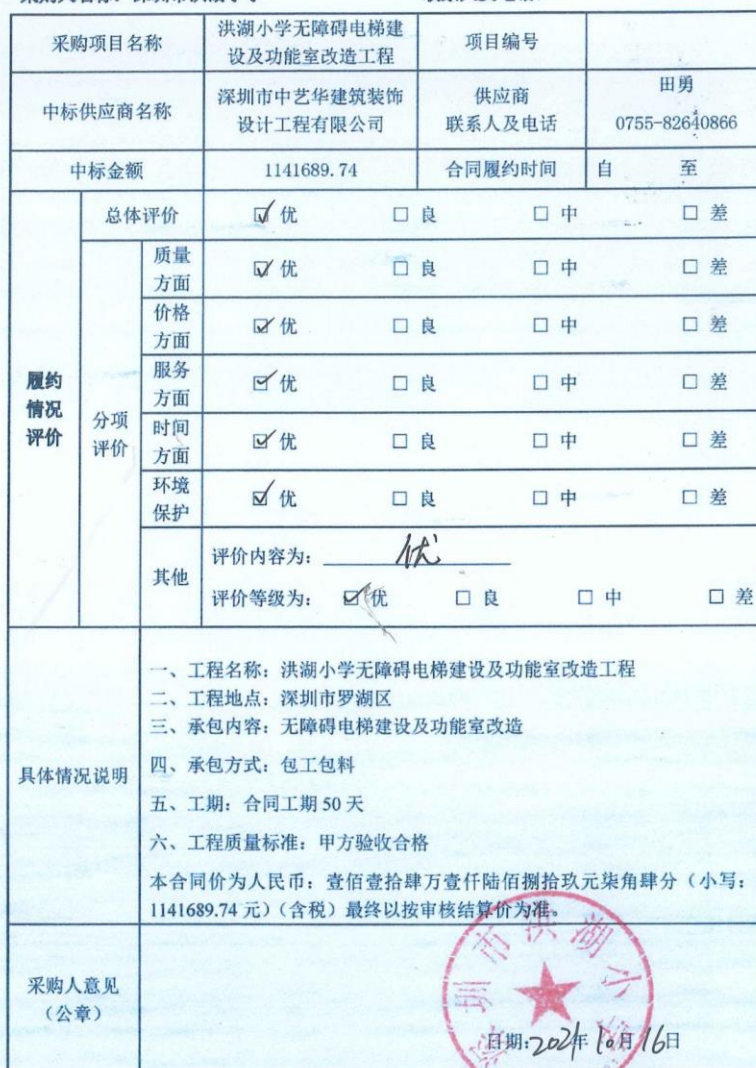 采购项目名称
洪湖小学无障碍电梯建
设及功能室改造工程
项目编号
中标供应商名称
深圳市中艺华建筑装饰
设计工程有限公司
供应商
联系人及电话
田勇
0755-82640866
中标金额
1141689.74
合同履约时间
自 至
履约
情况
评价
总体评价
☑ 优 □ 良 □ 中 □ 差
分项
评价
质量
方面
☑ 优 □ 良 □ 中 □ 差
价格
方面
☑ 优 □ 良 □ 中 □ 差
服务
方面
☑ 优 □ 良 □ 中 □ 差
时间
方面
☑ 优 □ 良 □ 中 □ 差
环境
保护
☑ 优 □ 良 □ 中 □ 差
其他
评价内容为: 优
评价等级为: ☑ 优 □ 良 □ 中 □ 差
具体情况说明
一、工程名称:洪湖小学无障碍电梯建设及功能室改造工程
二、工程地点:深圳市罗湖区
三、承包内容:无障碍电梯建设及功能室改造
四、承包方式:包工包料
五、工期:合同工期 50 天
六、工程质量标准:甲方验收合格
本合同价为人民币:壹佰壹拾肆万壹仟陆佰捌拾玖元柒角肆分(小写:
1141689.74 元)(含税)最终以按审核结算价为准。
采购人意见
(公章)
圳市洪湖小
日期:2021年10月16日